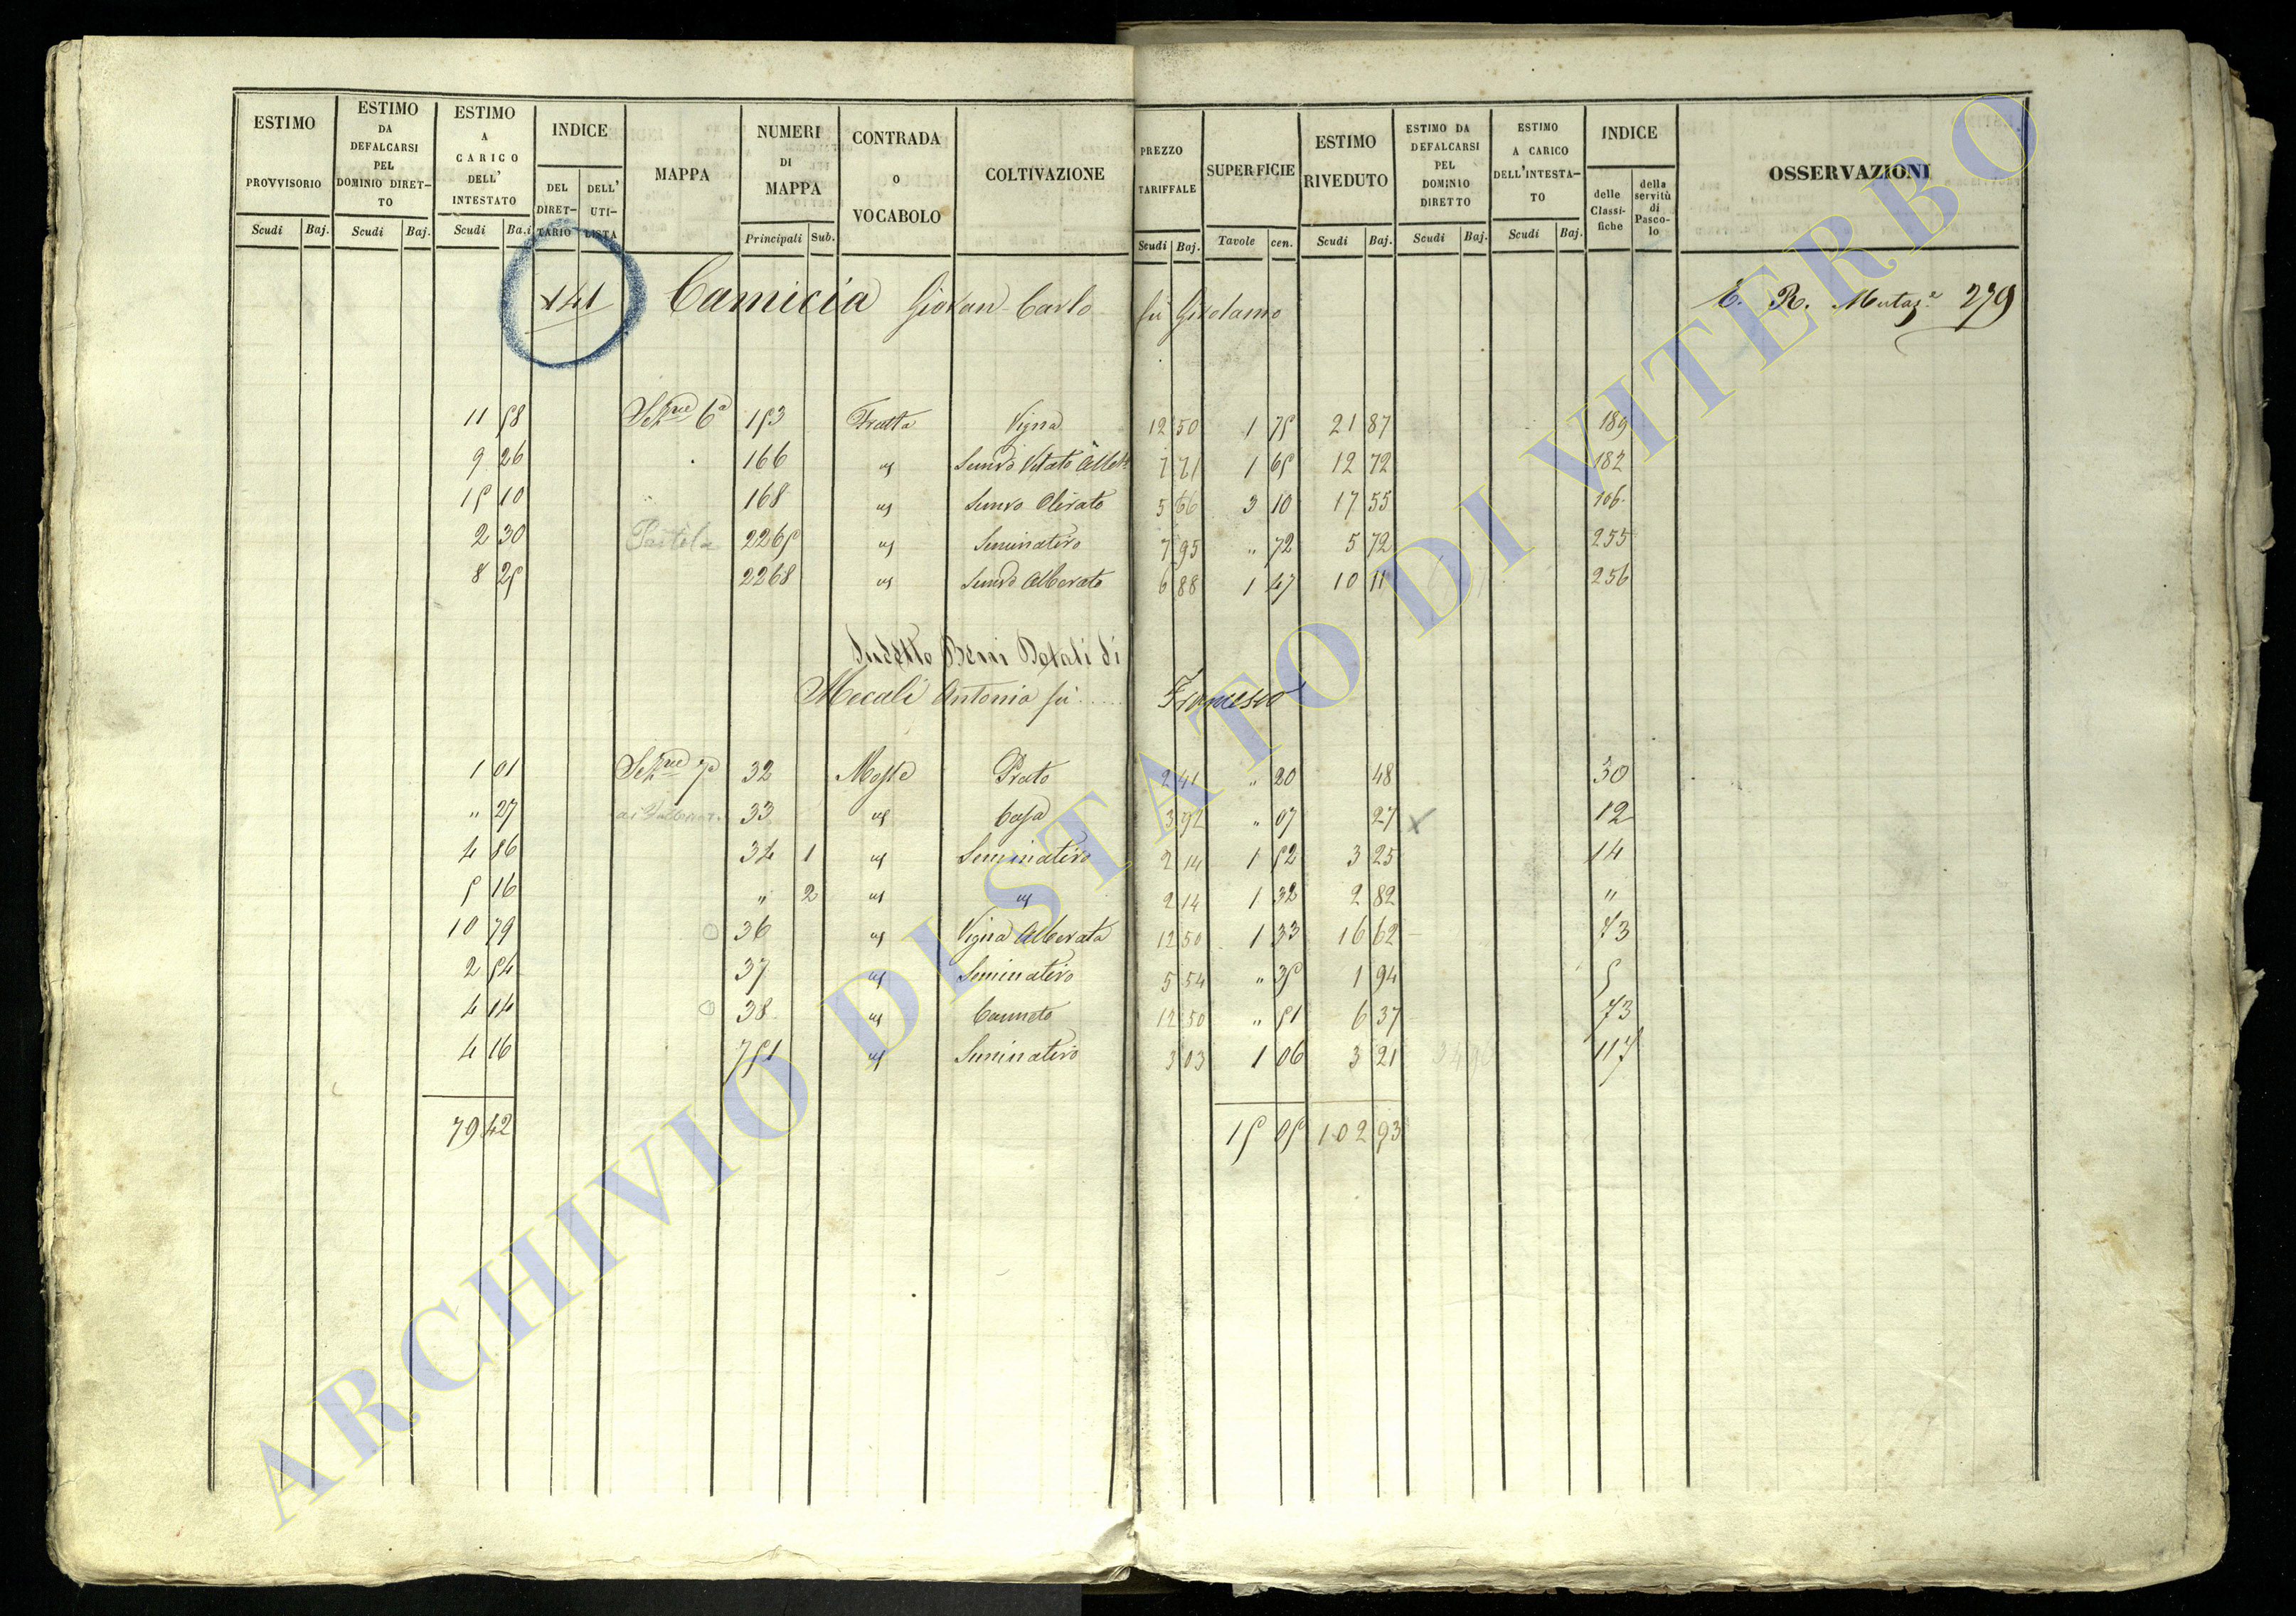 ESTIMO PROVVISORIO
Scudi Baj.
ESTIMO DA DEFALCARSI PEL DOMINIO DIRET-TO
Scudi Baj.
ESTIMO A CARICO DELL' INTESTATO
Scudi Baj.
INDICE
DEL DIRET-TARIO
DELL' UTI-LISTA
MAPPA
NUMERI DI MAPPA
Principali Sub.
CONTRADA O VOCABOLO
COLTIVAZIONE
PREZZO TARIFFALE
Scudi Baj.
SUPERFICIE
Tavole cen.
ESTIMO RIVEDUTO
Scudi Baj.
ESTIMO DA DEFALCARSI PEL DOMINIO DIRETTO
Scudi Baj.
ESTIMO A CARICO DELL'INTESTA-TO
Scudi Baj.
INDICE
delle Classi-fiche
della servitù di Pasco-lo
OSSERVAZIONI
141 Camicia Giovan Carlo fu Girolamo E. R. Mutaz.e 279
11 58 Sez.ne 6a 153 Fratta Vigna 12 50 1 75 21 87 189
9 26 166 us Semvo Vitato 7 71 1 65 12 72 182
15 10 168 us Semvo Olivato 5 66 3 10 17 55 106
2 30 2265 us Seminativo 7 95 " 72 5 72 255
8 25 2268 us Semvo Alberato 6 88 1 47 10 11 256
Sudetto Beni Dotali di
Mecali Antonia fu ..... Francesco
1 01 Sez.ne 7a 32 Prato 2 41 " 20 48 30
" 27 33 us Casa 3 92 " 07 27 x 12
4 86 34 1 us Seminativo 2 14 1 52 3 25 14
5 16 " 2 us us 2 14 1 32 2 82 "
10 79 36 us Vigna Alberata 12 50 1 33 16 62 73
2 54 37 us Seminativo 5 54 " 35 1 94 5
4 14 38 us Canneto 12 50 " 51 6 37 73
4 16 751 us Seminativo 3 03 1 06 3 21 117
79 42 15 05 102 93
ARCHIVIO DI STATO DI VITERBO